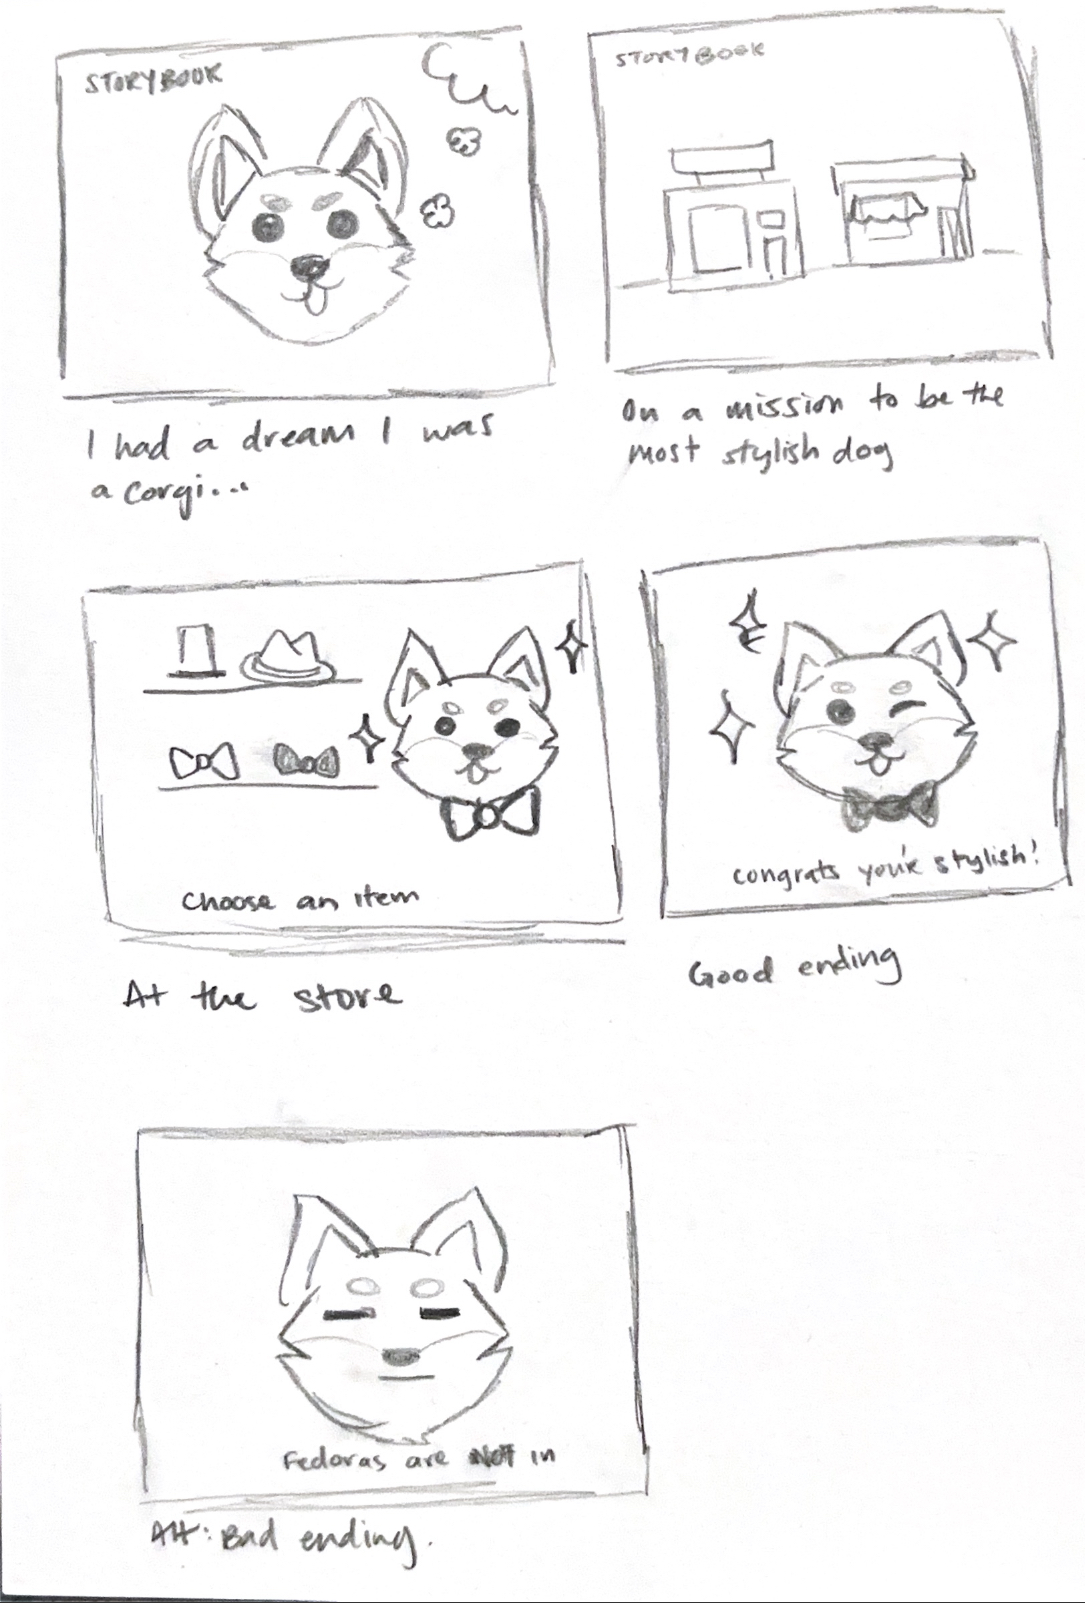 STORYBOOK
I had a dream I was
a corgi...
STORYBOOK
On a mission to be the
most stylish dog
Choose an item
At the store
congrats you're stylish!
Good ending
Fedoras are NOT in
Alt: Bad ending.